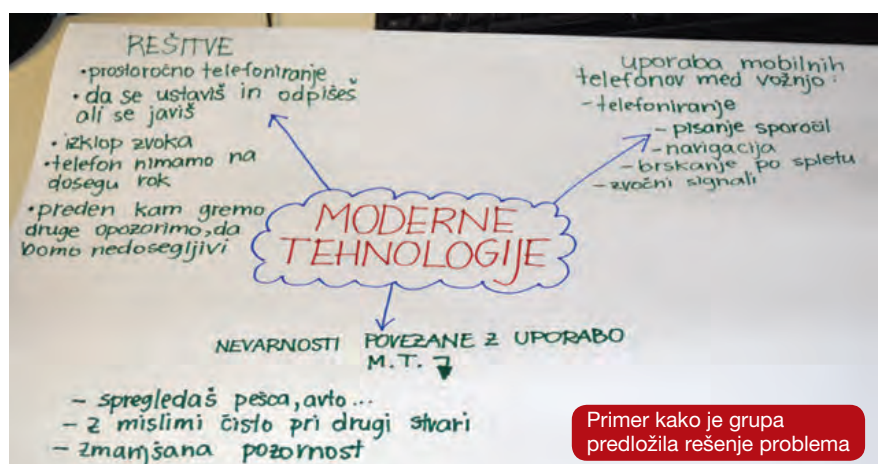 REŠITVE
• prostoročno telefoniranje
• da se ustaviš in odpišeš
ali se javiš
• izklop zvoka
• telefon nimamo na
dosegu rok
• preden kam gremo
druge opozorimo, da
bomo nedosegljivi
uporaba mobilnih
telefonov med vožnjo:
- telefoniranje
- pisanje sporočil
- navigacija
- brskanje po spletu
- zvočni signali
MODERNE
TEHNOLOGIJE
NEVARNOSTI POVEZANE Z UPORABO
M.T.
- spregledaš pešca, avto...
- z mislimi čisto pri drugi stvari
- zmanjšana pozornost
Primer kako je grupa
predložila rešenje problema